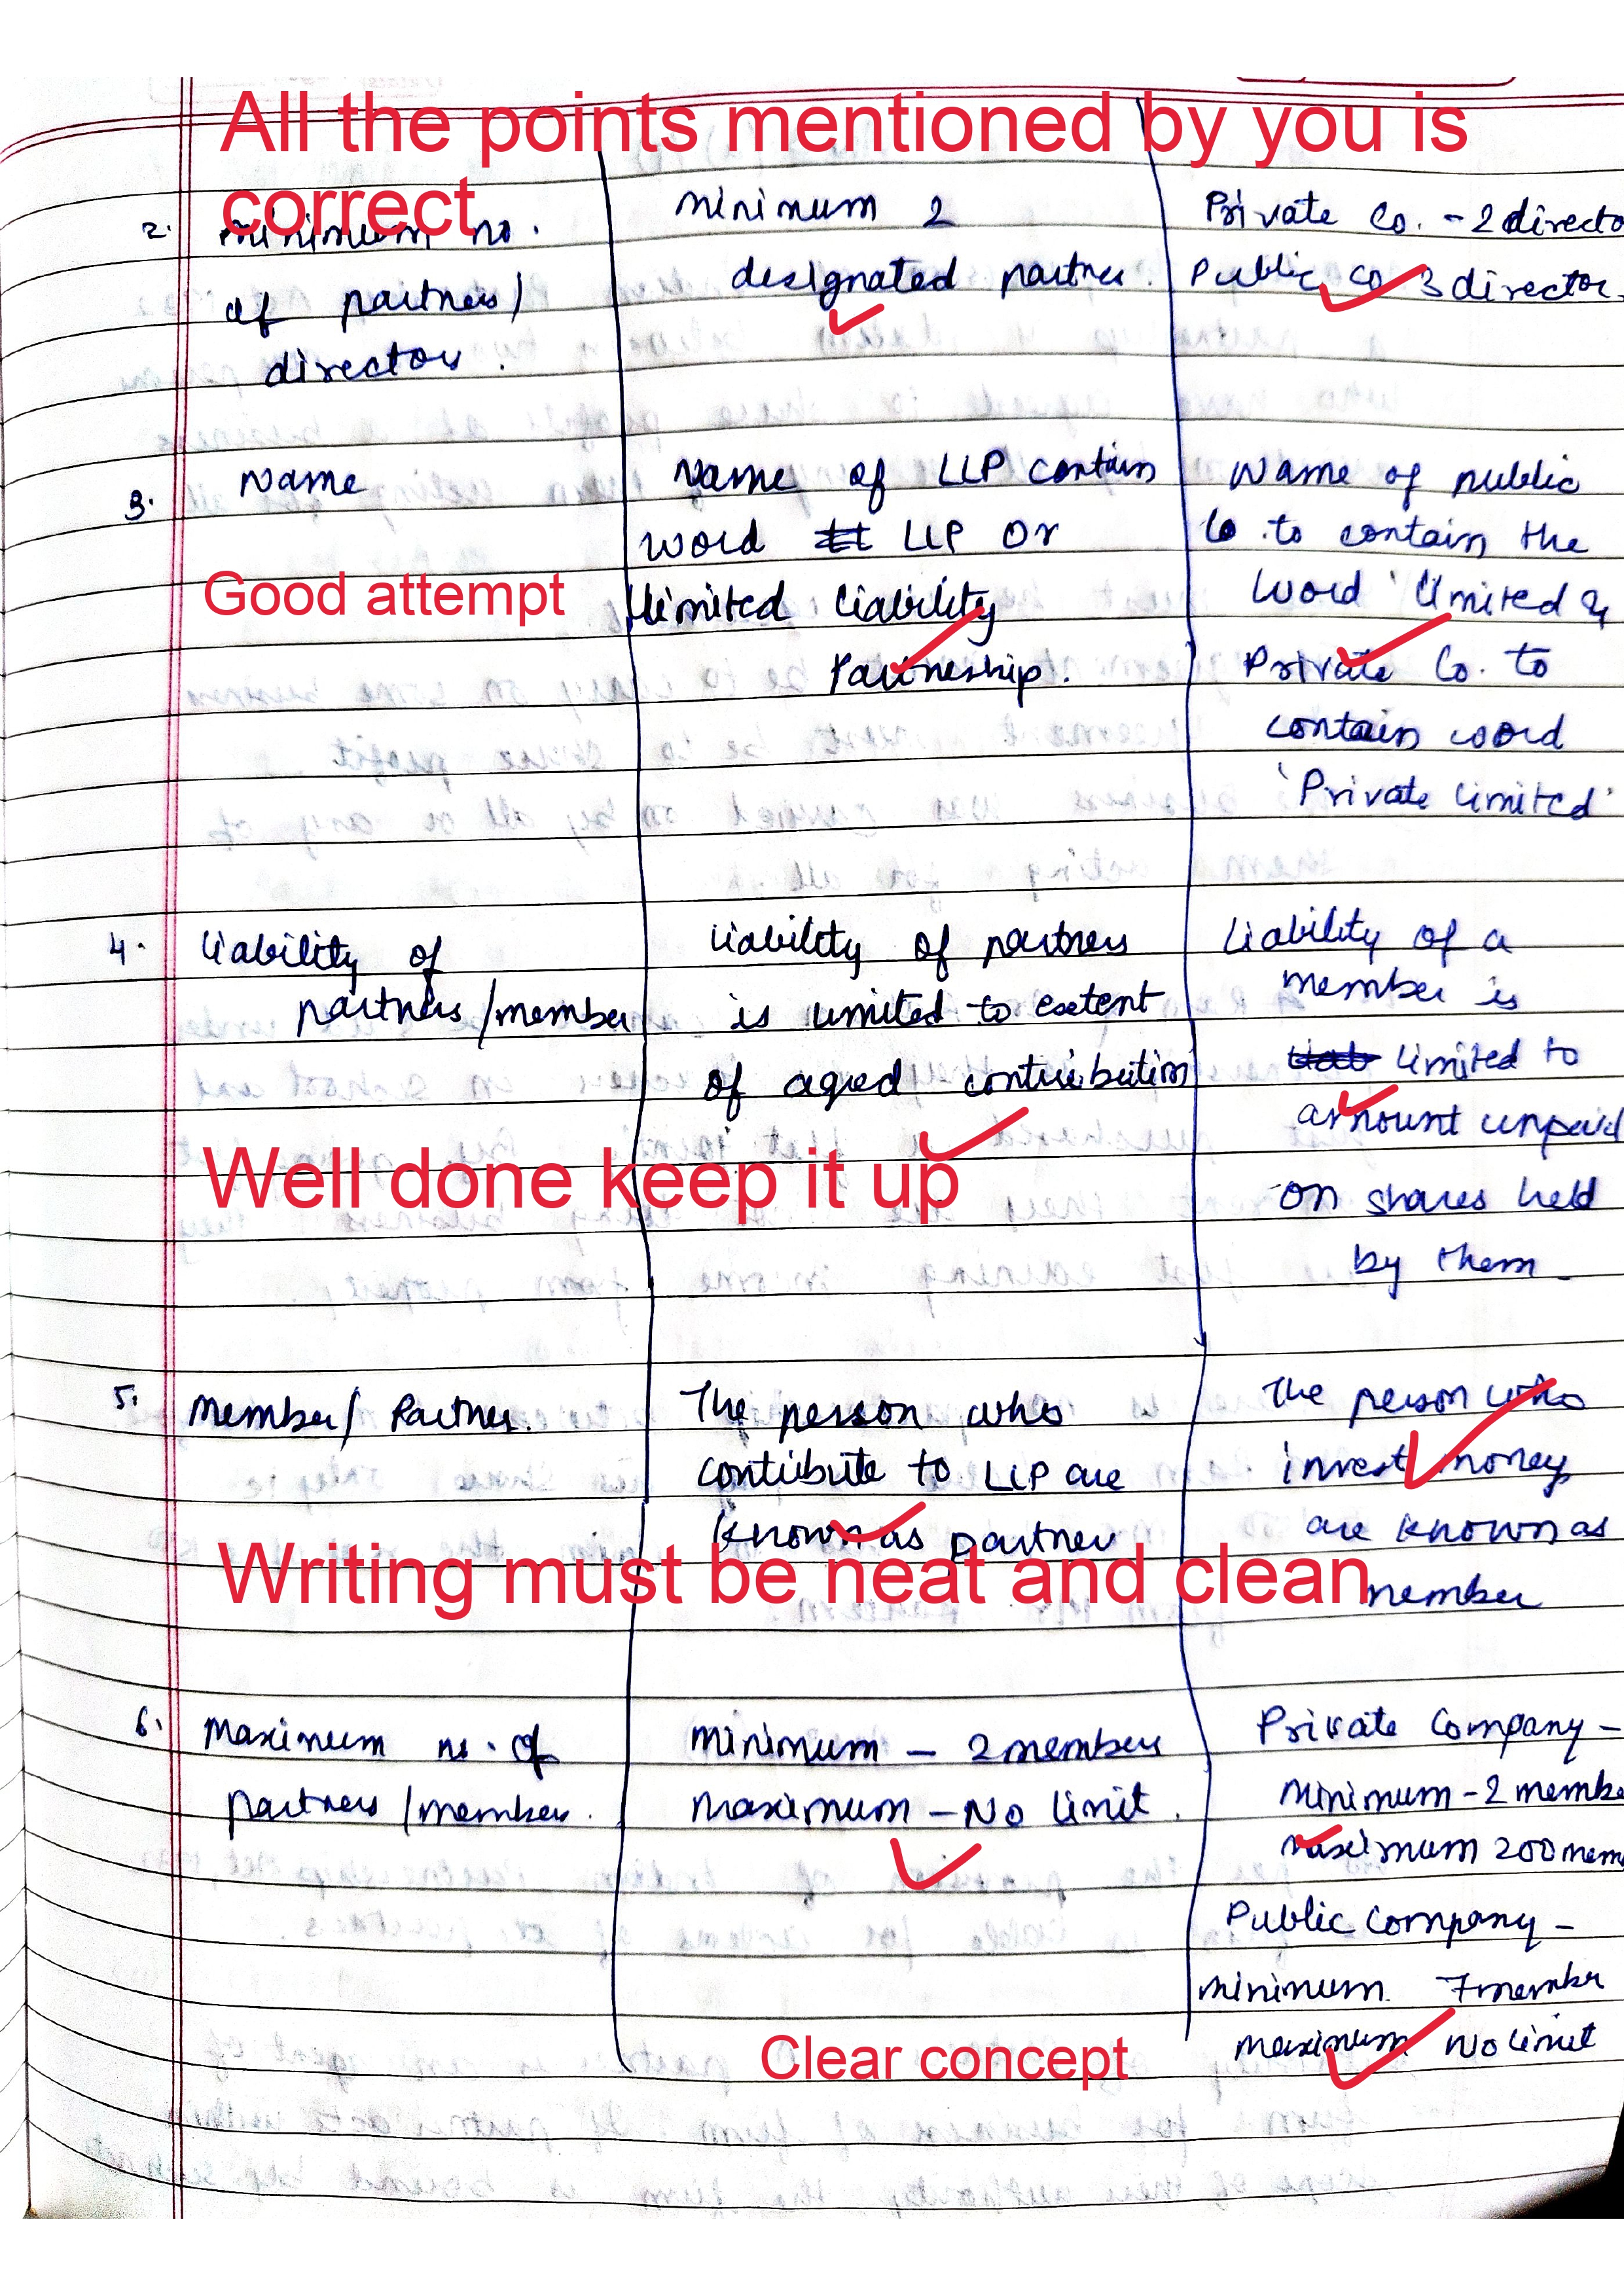 All the points mentioned by you is
correct
2. Minimum no.
of partners/
directors.
Minimum 2
designated partner.
Private Co. - 2 directo
Public Co 3 director.
3. Name
Name of LLP contain
word LLP Or
limited liability
Partneship.
Name of public
Co. to contain the
word 'limited &
Private Co. to
contain word
'Private limited'
Good attempt
4. liability of
partners/member
liability of partners
is limited to extent
of agred contribution
Liability of a
member is
limited to
amount unpaid
on shares held
by them
Well done keep it up
5. Member/ Partner.
The person who
contribute to LLP are
known as partner
The person who
invest money
are known as
member
Writing must be neat and clean
6. Maximum no. of
partners/member.
Minimum - 2 members
Maximum - No limit.
Private Company -
Minimum - 2 membe
Maximum 200 mem
Public Company -
Minimum 7 member
Maximum No limit
Clear concept